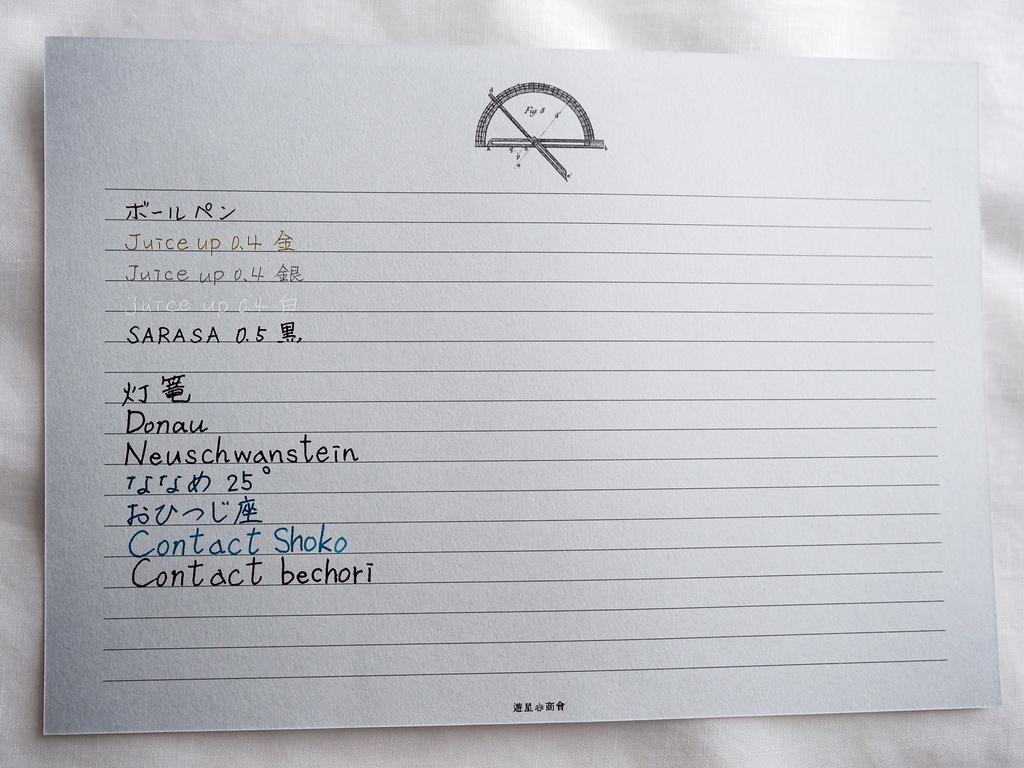 Fig. 8
ボールペン
Juice up 0.4 金
Juice up 0.4 銀
Juice up 0.4 白
SARASA 0.5 黒
灯篭
Donau
Neuschwanstein
ななめ 25°
おひつじ座
Contact Shoko
Contact bechori
遊星商會